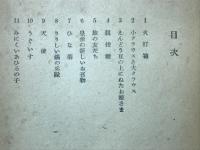 目次
1 火打箱
2 小クラウスと大クラウス
3 えんどう豆の上にねたお姫さま
4 親指姫
5 旅の友だち
6 皇帝の新しいお召物
7 ひな菊
8 しっかり者の錫の兵隊
9 天使
10 うぐいす
11 みにくいあひるの子